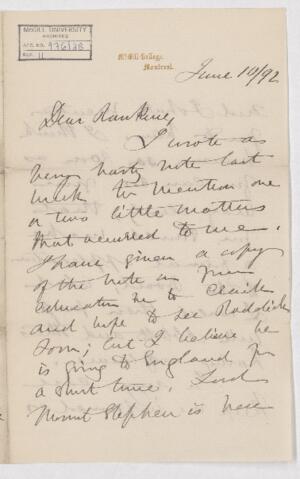 McGILL UNIVERSITY
ARCHIVES
ACC. NO.
REF. 11
McGill College,
Montreal.
June 10/92
Dear Rankine,
I wrote a
very hasty note last
week to mention one
or two little matters
that occurred to me.
I have given a copy
of the note on
Education &c to
and hope to see
soon; but I believe he
is going to England for
a short time. Lord
Mount Stephen is here